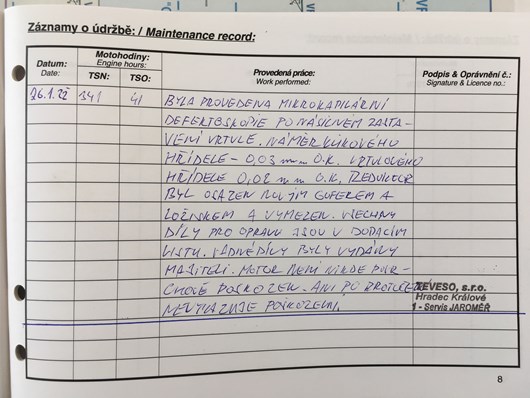 Záznamy o údržbě: / Maintenance record:
Datum:
Date:
Motohodiny:
Engine hours:
TSN:
TSO:
Provedená práce:
Work performed:
Podpis & Oprávnění č.:
Signature & Licence no.:
26.1.22 341 41 BYLA PROVEDENA MIKROKAPILÁRNÍ
DEFEKTOSKOPIE PO NÁSILNÉM ZASTA-
VENÍ VRTULE. NÁMĚR KLIKOVÉHO
HŘÍDELE - 0,03 mm O.K. VRTULOVÉHO
HŘÍDELE 0,02 mm O.K. REDUKTOR
BYL OSAZEN NOVÝM GUFEREM A
LOŽISKEM A VYMEZEN. VŠECHNY
DÍLY PRO OPRAVU JSOU V DODACÍM
LISTU. VADNÉ DÍLY BYLY VYDÁNY
MAJITELI. MOTOR NENÍ NIKDE POVR-
CHOVĚ POŠKOZEN. ANI PO
NEVYKAZUJE POŠKOZENÍ.
TEVESO, s.r.o.
Hradec Králové
1 - Servis JAROMĚŘ
8